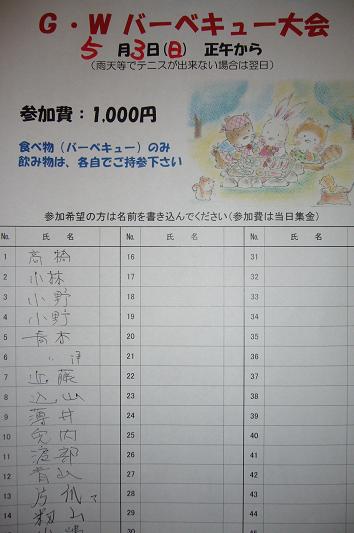 G・W バーベキュー大会
5月3日(日) 正午から
(雨天等でテニスが出来ない場合は翌日)
参加費：1.000円
食べ物（バーベキュー）のみ
飲み物は、各自でご持参下さい
参加希望の方は名前を書き込んでください(参加費は当日集金)
No. 氏 名 No. 氏 名 No. 氏 名
1 高橋 16 31
2 小林 17 32
3 小野 18 33
4 小野 19 34
5 青木 20 35
6 21 36
7 近藤 22 37
8 込山 23 38
9 薄井 24 39
10 25 40
11 渡部 26 41
12 青山 27 42
13 28 43
14 29 44